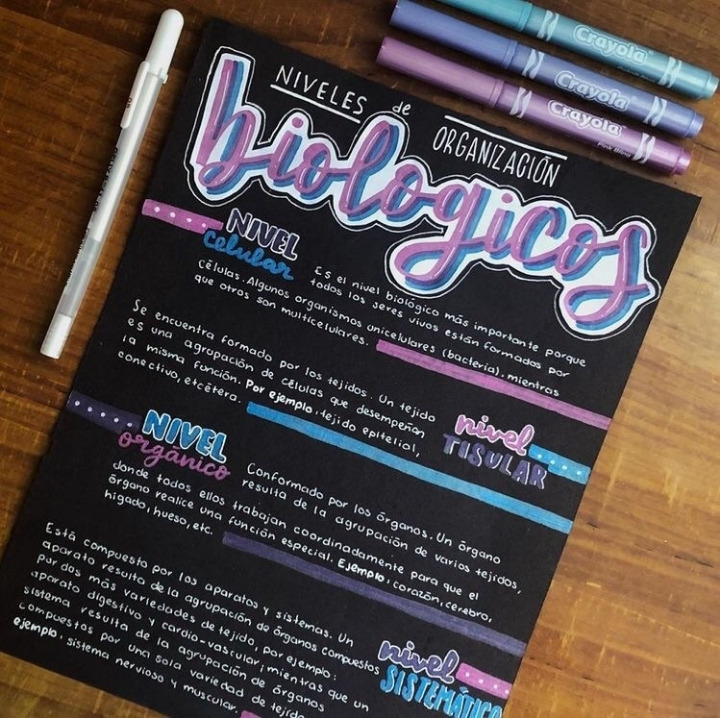 NIVELES de
ORGANIZACIÓN
biologicos
NIVEL
celular
Es el nivel biológico más importante porque
todos los seres vivos están formados por
células. Algunos organismos unicelulares (bacteria), mientras
que otros son multicelulares.
Se encuentra formado por los tejidos. Un tejido
es una agrupación de células que desempeñan
la misma función. Por ejemplo: tejido epitelial,
conectivo, etcétera.
nivel
TISULAR
NIVEL
orgánico
Conformado por los órganos. Un órgano
resulta de la agrupación de varios tejidos,
donde todos ellos trabajan coordinadamente para que el
órgano realice una función especial. Ejemplo: corazón, cerebro,
hígado, hueso, etc.
Está compuesta por los aparatos y sistemas. Un
aparato resulta de la agrupación de órganos compuestos
por dos más variedades de tejido, por ejemplo:
aparato digestivo y cardio-vascular; mientras que un
sistema resulta de la agrupación de órganos
compuestos por una sola variedad de tejido
ejemplo: sistema nervioso y muscular.
nivel
SISTEMÁTICO
Crayola
Crayola
Crayola